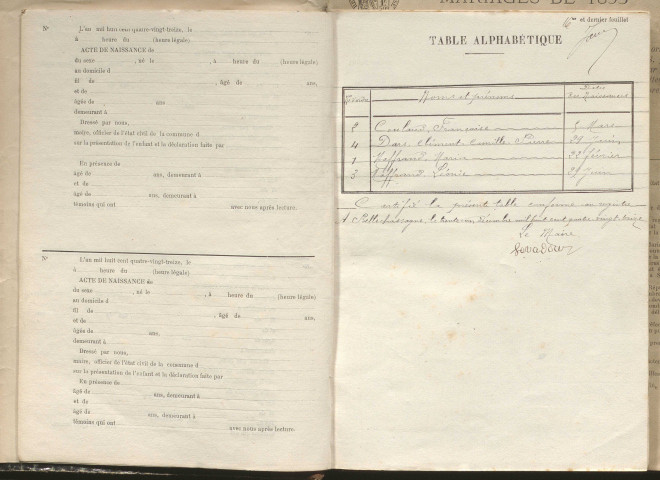 MARIAGES DE 1893
et dernier feuillet
N° L'an mil huit cent quatre-vingt-treize, le
à heure du (heure légale)
ACTE DE NAISSANCE de
du sexe , né le , à heure du (heure légale)
au domicile d
fil de , âgé de ans,
et de
âgée de , ans
demeurant à
Dressé par nous,
maire, officier de l'état civil de la commune d
sur la présentation de l'enfant et la déclaration faite par
En présence de
âgé de ans, demeurant à
et de
âgé de ans, demeurant à
témoins qui ont avec nous après lecture.
N° L'an mil huit cent quatre-vingt-treize, le
à heure du (heure légale)
ACTE DE NAISSANCE de
du sexe , né le , à heure du (heure légale)
au domicile d
fil de , âgé de ans,
et de
âgée de ans,
demeurant à
Dressé par nous,
maire, officier de l'état civil de la commune d
sur la présentation de l'enfant et la déclaration faite par
En présence de
âgé de ans, demeurant à
et de
âgé de ans, demeurant à
témoins qui ont avec nous après lecture.
TABLE ALPHABÉTIQUE
Noms et prénoms Dates des Naissances
2 Françoise 5 Mars
4 Clément Camille Pierre 29 Juin
1 Maria 22 février
3 Léonie 29 Juin
Certifié la présente table conforme au registre
A le trente un décembre mil huit cent quatre vingt treize
Le Maire